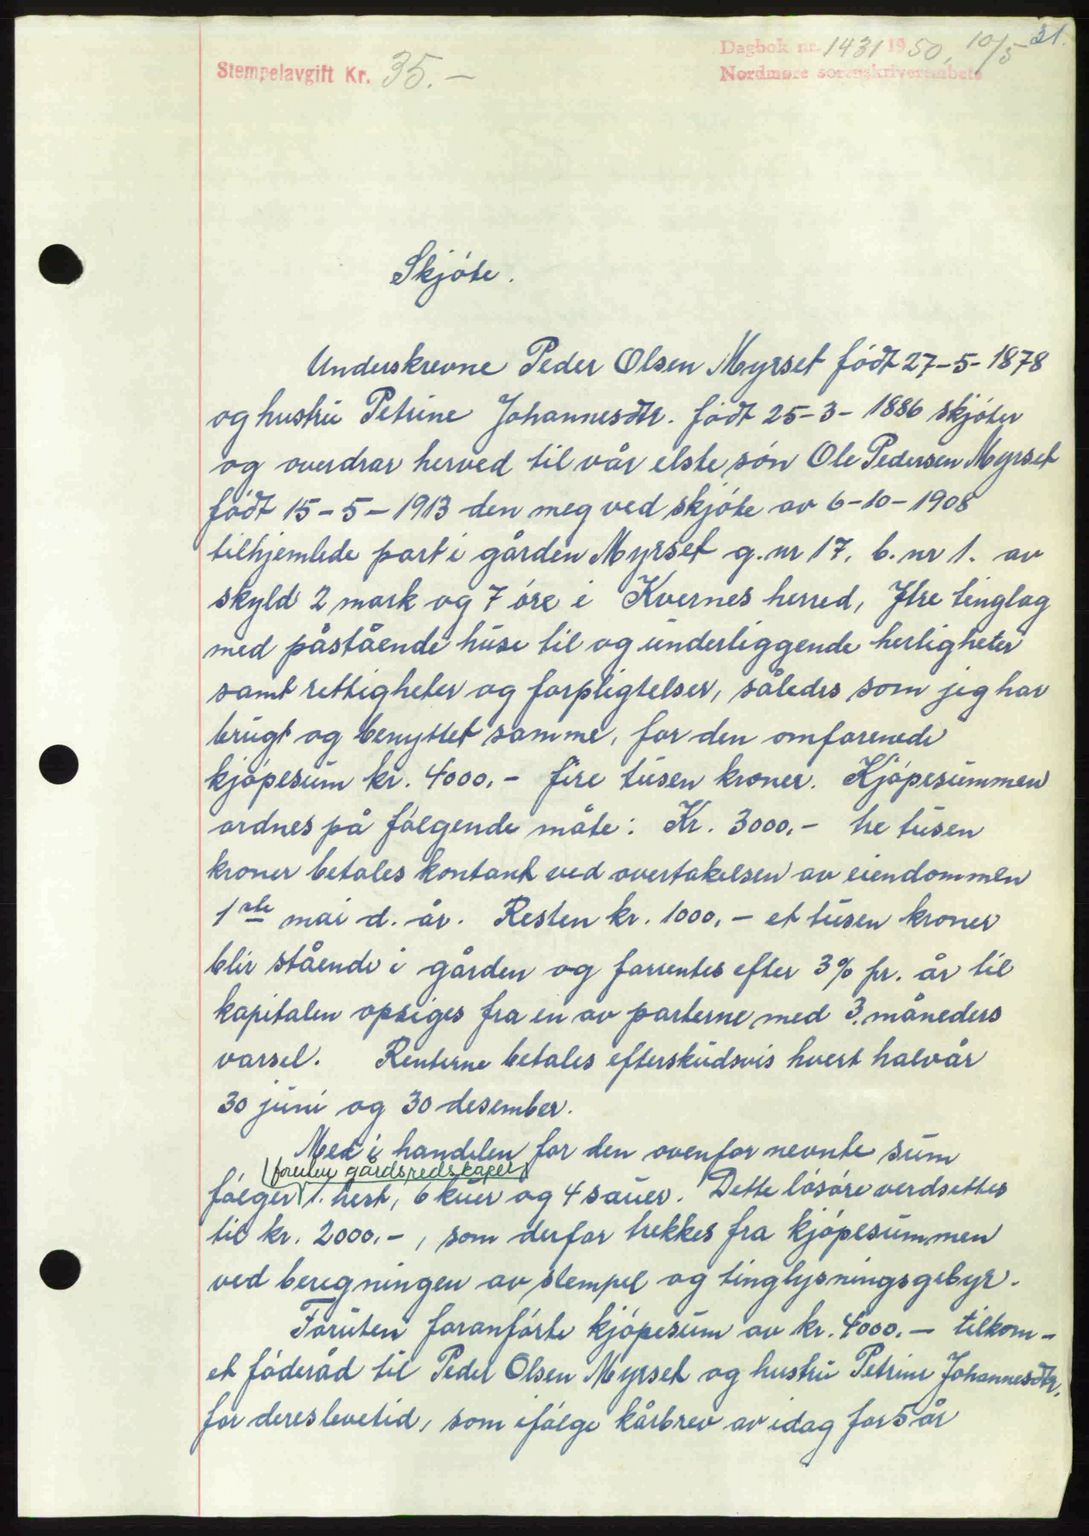 31.
Dagbok nr. 1431 1950, 10/5
Stempelavgift Kr. 35.-
Nordmøre sorenskriverembete
Skjöte.
Underskrevne Peder Olsen Myrset födt 27-5-1878
og hustru Petrine Johannesdtr. födt 25-3-1886 skjöter
og overdrar herved til vår elste sön Ole Pedersen Myrset
födt 15-5-1913 den meg ved skjöte av 6-10-1908
tilhjemlede part i gården Myrset g.nr 17, b.nr 1. av
skyld 2 mark og 7 öre i Kvernes herred, Ytre tinglag
med påstående huse til og underliggende herligheter
samt rettigheter og forpligtelser, således som jeg har
brugt og benyttet samme, for den omforenede
kjöpesum kr. 4000,- fire tusen kroner. Kjöpesummen
ordnes på fölgende måte: Kr. 3000,- tre tusen
kroner betales kontant ved overtakelsen av eiendommen
1ste mai d. år. Resten kr. 1000,- et tusen kroner
blir stående i gården og forrentes efter 3% pr. år til
kapitalen opsiges fra en av parterne med 3. måneders
varsel. Renterne betales efterskudsvis hvert halvår
30 juni og 30 desember.
Med i handelen for den ovenfor nevnte sum
foruten gårdsredskaper
fölger 1. hest, 6 kuer og 4 sauer. Dette lösöre verdsettes
til kr. 2000,-, som derfor trekkes fra kjöpesummen
ved beregningen av stempel og tinglysningsgebyr.
Foruten foranförte kjöpesum av kr. 4000.- tilkom-
et föderåd til Peder Olsen Myrset og hustru Petrine Johannesdtr.
for deres levetid, som ifölge kårbrev av idag for 5 år